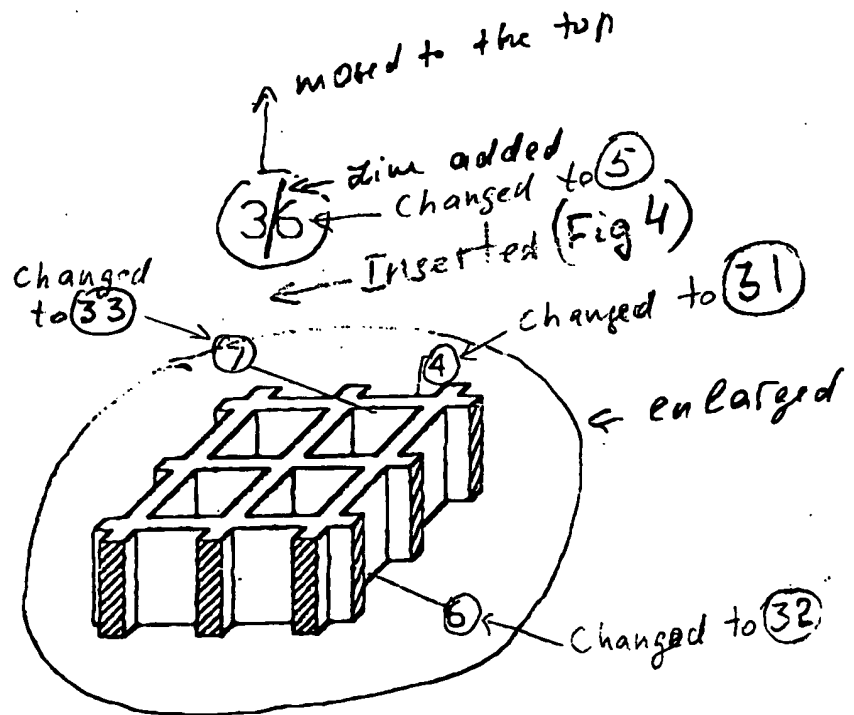 moved to the top
Line added
3/6 ← Changed to 5
← Inserted (Fig 4)
Changed
to 33
Changed to 31
7
4
← enlarged
6
Changed to 32